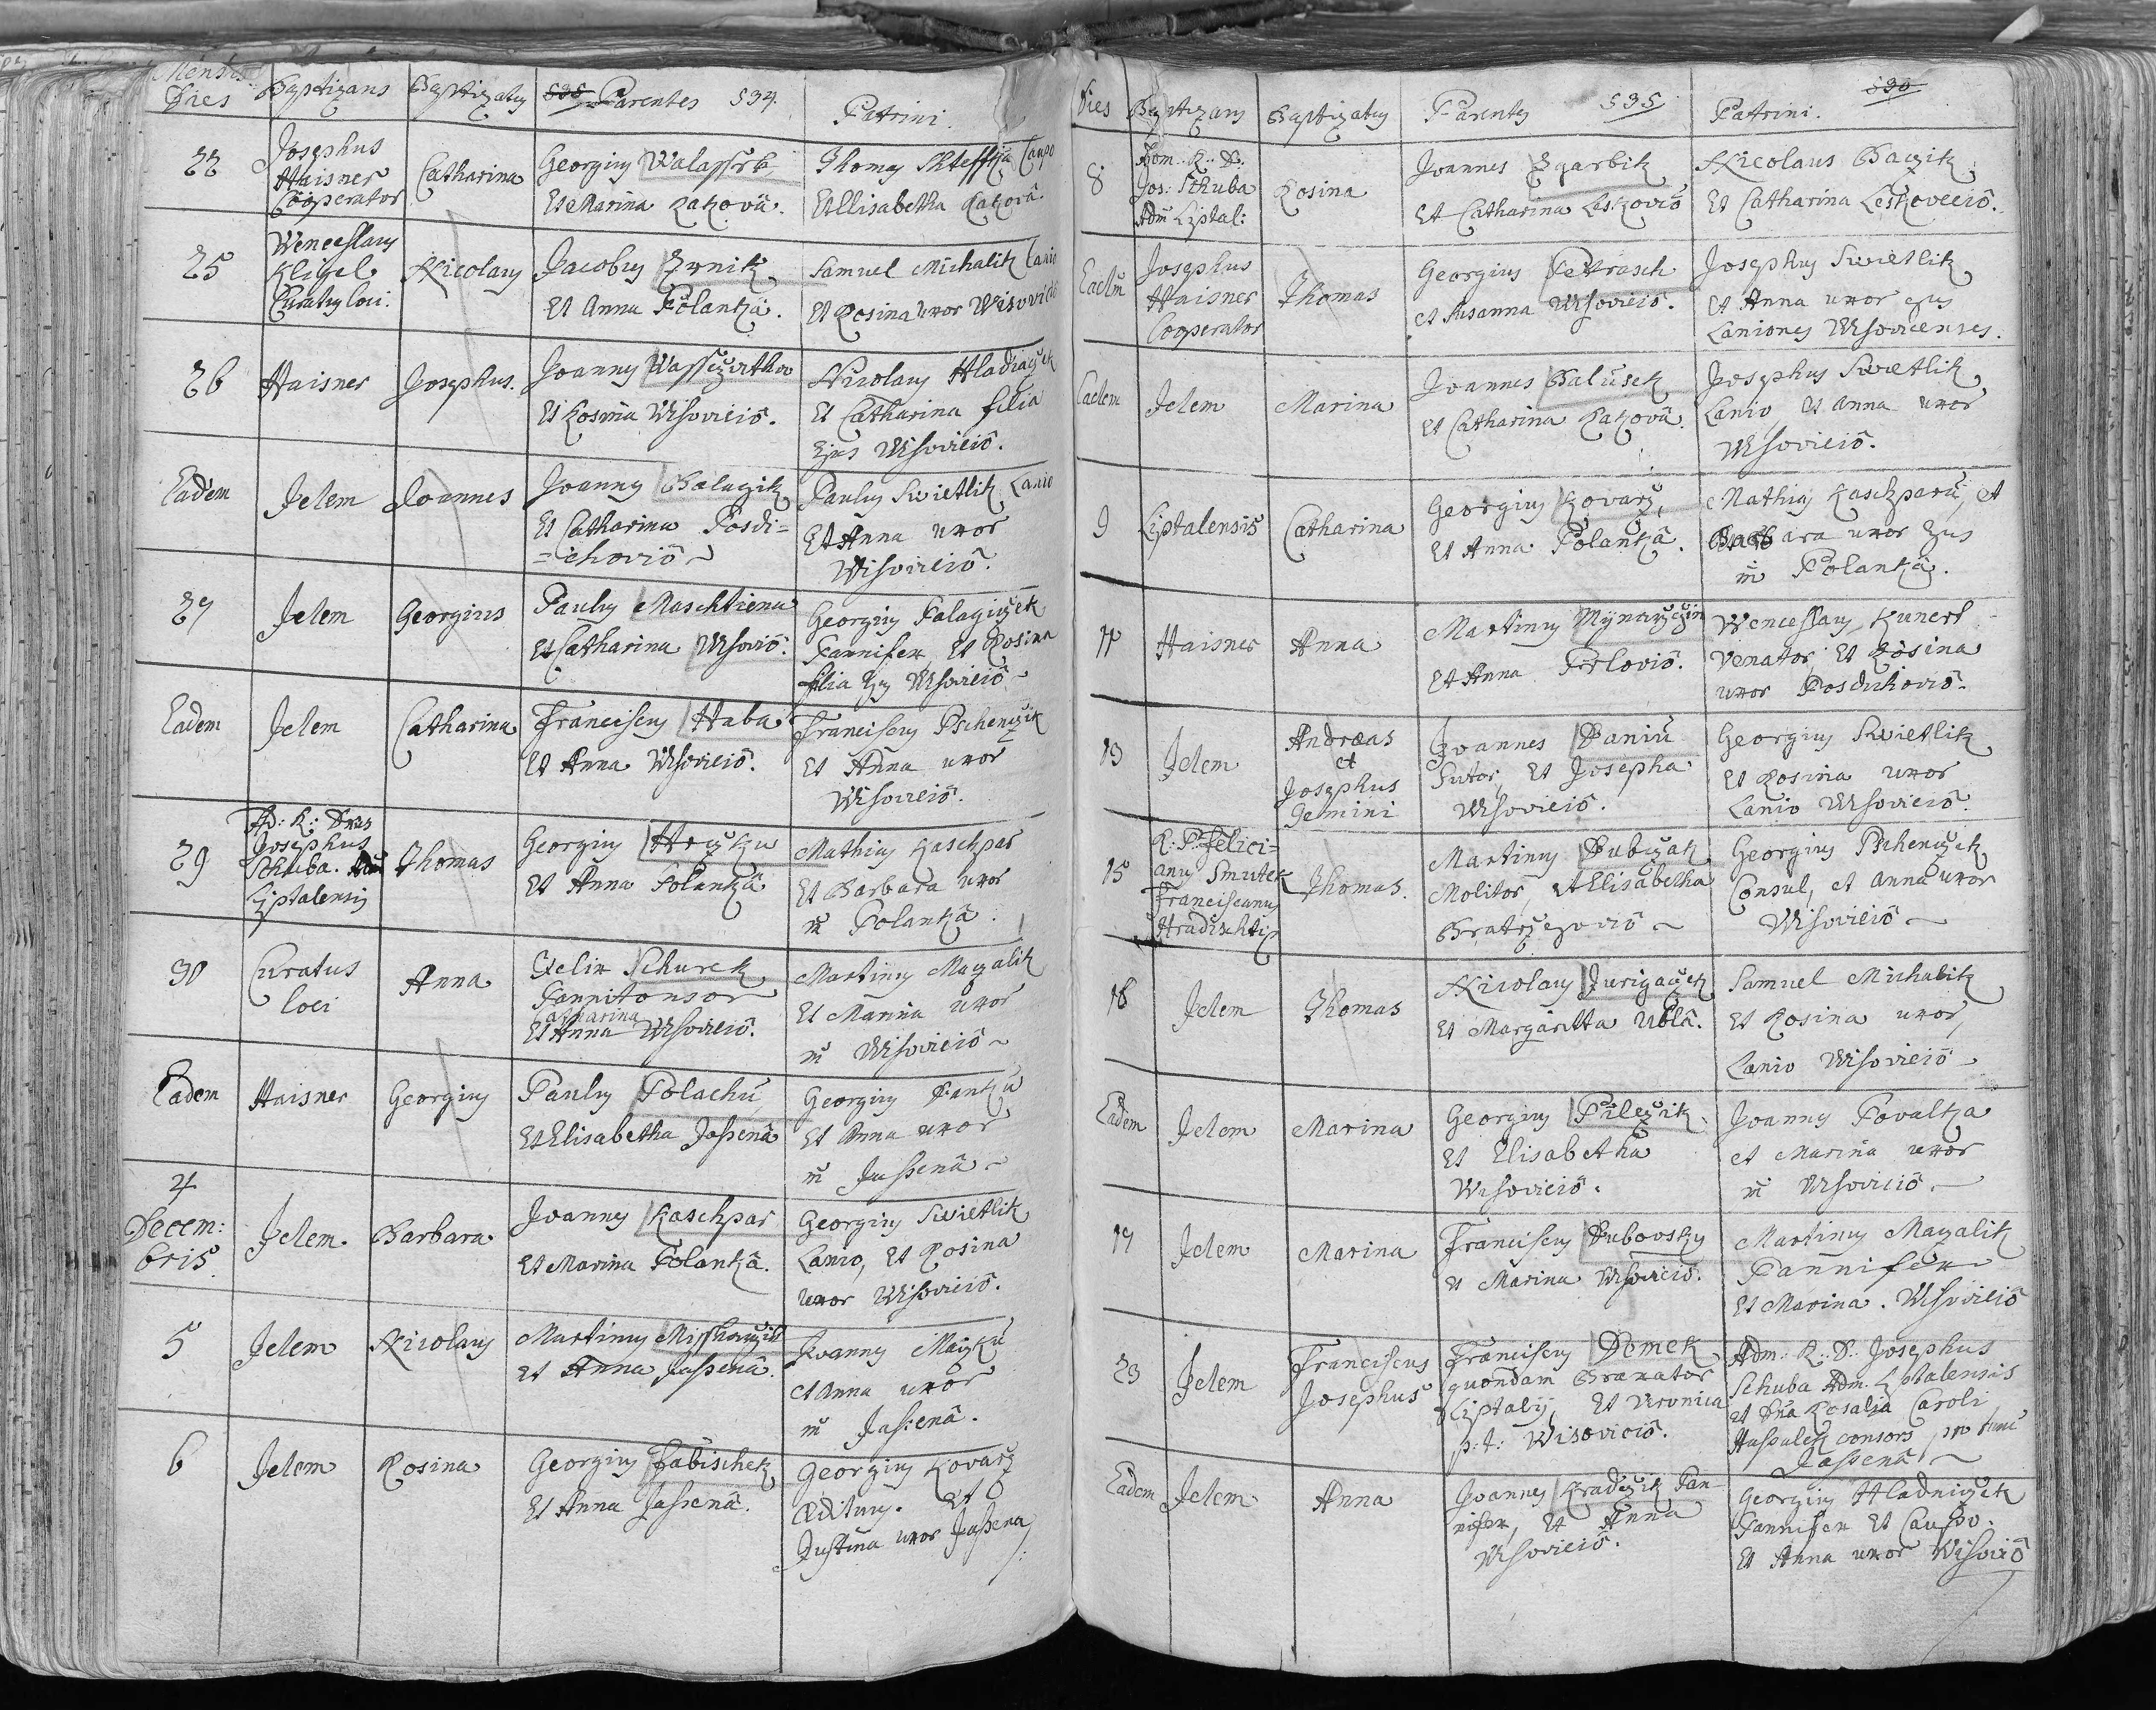 Mensis
Dies Baptizans Baptizatus 535 Parentes 534. Patrini.
22 Josephus Haisner Cooperator
Catharina
Georgius Walassek
Et Marina Ratkovä.
Thomas Caupo
Et Elisabetha Ratkovâ.
25 Wenceslaus Kligel Curatus loci.
Nicolaus
Jacobus
Et Anna Polankä.
Samuel Michalik Lanio
Et Rosina uxor
26 Haisner
Josephus.
Joannes
Et Rosina Wisoviciô.
Nicolaus
Et Catharina filia
Ejus Wisoviciô.
Eadem Idem
Joannes
Joannes
Et Catharina Posdi=
=ichoviô
Paulus Swietlik Lanio
Et Anna uxor
Wisoviciô.
27 Idem
Georgius
Paulus Maschtiena
Et Catharina Wisoviô.
Georgius
Pannifex Et Rosina
filia Ejus Wisoviciô
Eadem Idem
Catharina
Franciscus Haba
Et Anna Wisoviciô.
Franciscus Pschenczik
Et Anna uxor
Wisoviciô.
29 Ad: R: Josephus Schuba. Liptalensis
Thomas
Georgius
Et Anna Polankâ
Mathias Kaschpar
Et Barbara uxor
in Polankâ.
30 Curatus loci
Anna
Felix Schurek
Pannitonsor
Catharina
Et Anna Wisoviciô.
Martinus Mazalik
Et Marina uxor
in Wisoviciô
Eadem Haisner
Georgius
Paulus Polachů
Et Elisabetha Jassenâ
Georgius
Et Anna uxor
in Jassenâ
4 Decem: bris. Idem
Barbara
Joannes Kaschpar
Et Marina Polankâ.
Georgius Swietlik
Lanio, Et Rosina
uxor Wisoviciô.
5 Idem
Nicolaus
Martinus
et Anna Jassenâ.
Joannes
et Anna uxor
in Jassenâ.
6 Idem
Rosina
Georgius Fabischek
Et Anna Jassenâ.
Georgius Kovarz
Ædituus. Et
Justina uxor Jassena
Dies Baptizans Baptizatus Parentes 535 Patrini. 536
8 Adm. R: D. Jos: Schuba Adm Liptal:
Rosina
Joannes Zgarbik
Et Catharina Leskoviô
Nicolaus Baczik
Et Catharina Leskoveciô.
Eadem Josephus Haisner Cooperator
Thomas
Georgius Petrasch
et Susanna Wisoviciô.
Josephus Swietlik
et Anna uxor ejus
Laniones Wisovicenses.
Eadem Idem
Marina
Joannes Balusek
et Catharina Ratkovâ.
Josephus Swietlik
Lanio Et Anna uxor
Wisoviciô.
9 Liptalensis
Catharina
Georgius Kovarz,
Et Anna Polankâ.
Mathias Kaschparů, et
Barbara uxor Ejus
in Polankâ.
11 Haisner
Anna
Martinus
Et Anna
Wenceslaus Kunert
Venator, Et Rosina
uxor
13 Idem
Andreas
et
Josephus
Gemini
Joannes Daniů
Sutor, Et Josepha
Wisoviciô.
Georgius Swietlik
Et Rosina uxor
Lanio Wisoviciô.
15 R: P: Felici=
anus Smutek
Franciscanus
Thomas.
Martinus Dubczak
Molitor, Et Elisabetha
Bratrzegoviô
Georgius Pschenczik
Consul, et Anna uxor
Wisoviciô
16 Idem
Thomas
Nicolaus Jurigaczek
Et Margaritta Ublâ.
Samuel Michalik
Et Rosina uxor
Lanio Wisoviciô
Eadem Idem
Marina
Georgius Pilczik
Et Elisabetha
Wisoviciô.
Joannes Fovaltka
et Marina uxor
in Wisoviciô.
17 Idem
Marina
Franciscus Dubovsky
et Marina Wisoviciô.
Martinus Mazalik
Pannifex
Et Marina. Wisoviciô
23 Idem
Franciscus
Josephus
Franciscus Domek
quondam Braxator
Liptalij, Et Veronica
p: t: Wisoviciô.
Adm: R: D: Josephus
Schuba Adm. Liptalensis
et Dña Rosalia Caroli
consors
Jassenâ
Eadem Idem
Anna
Joannes Pan=
nifex, Et Anna
Wisoviciô.
Georgius Hladniczek
Pannifex Et Caupo.
Et Anna uxor Wisoviô